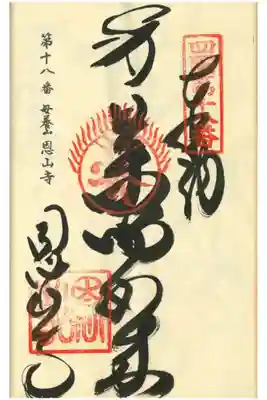 四国第十八番
奉納
薬師如来
恩山寺
第十八番 母養山 恩山寺